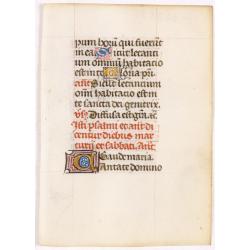 pum boꝝ qui fuerūt
in ea. Sicut letanti
um omniū habitatio
est in te Gloria pr̄i
añt Sicut letantium
omnī habitatio est in
te sancta dei genitrix.
vs̄ Diffusa est gr̄a. ac̄
Isti psalmi et añt di
centur diebus mar
curii et sabbati. Añt
Gaude maria.
Cantate domino